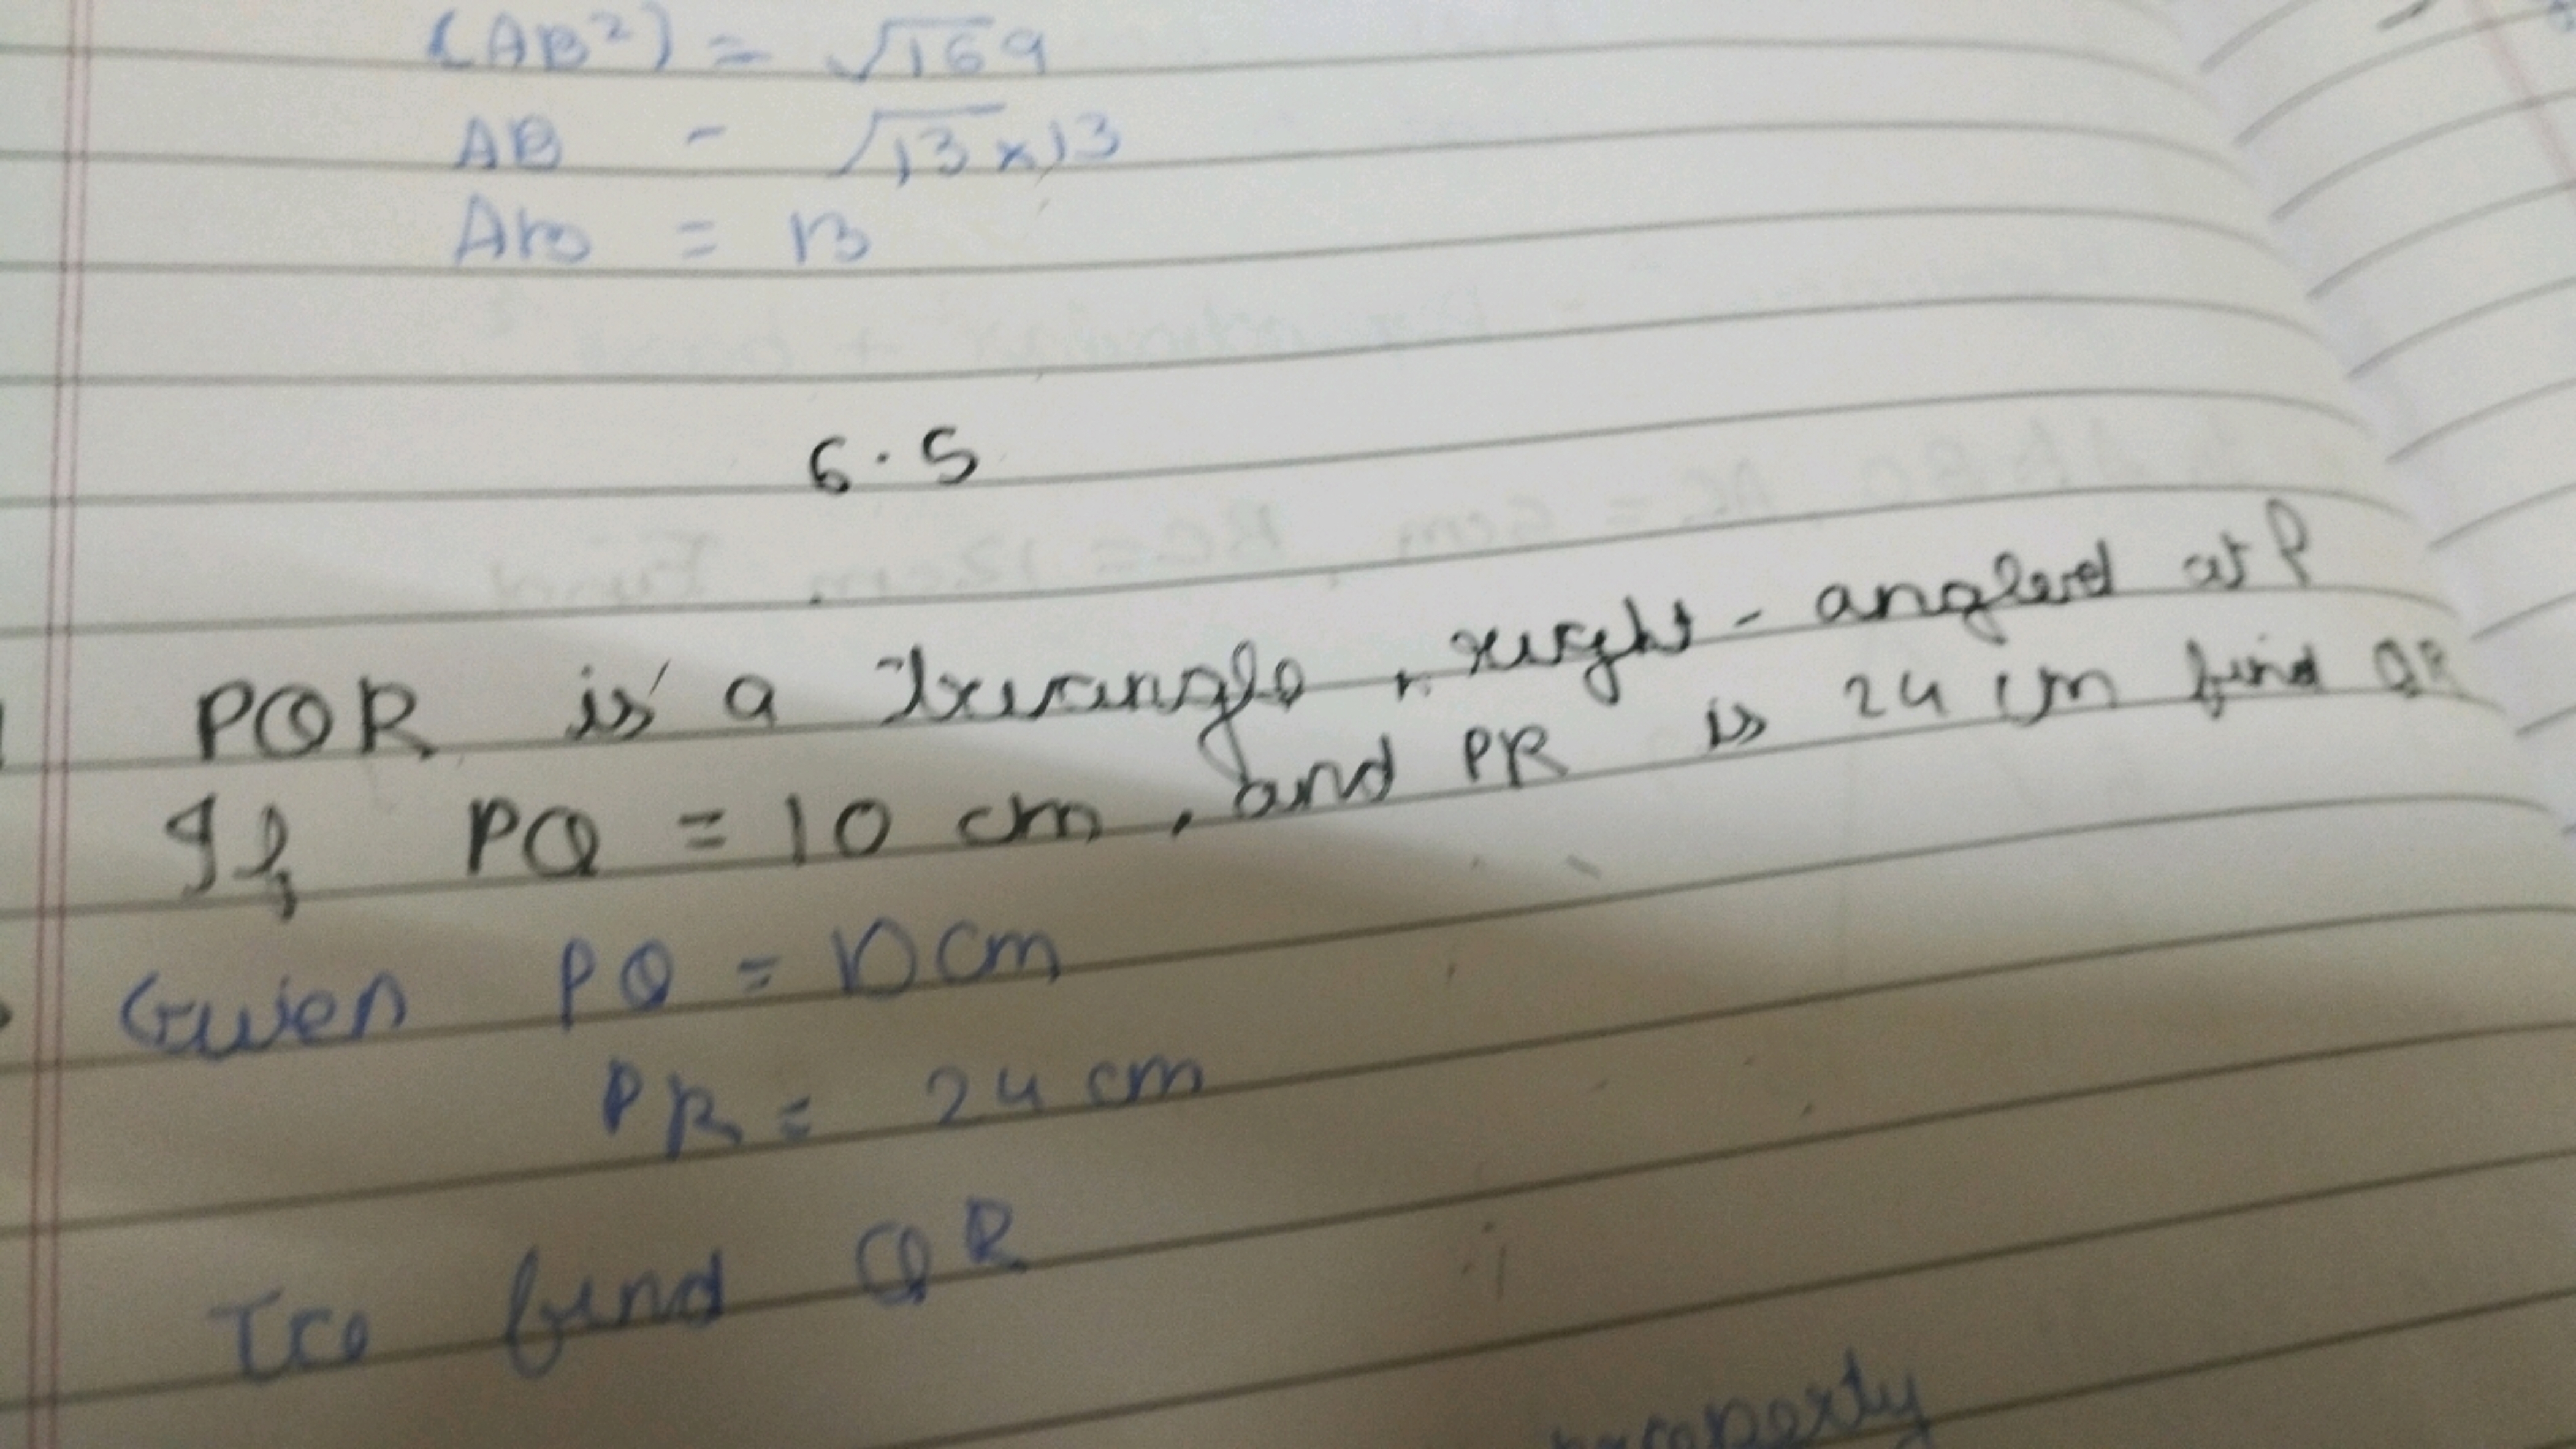 (AB²) = √169
AB - √13×13
AB = 13
6.5
PQR is a triangle, right-angled at P
If PQ = 10 cm, and PR is 24 cm find QR
Given PQ = 10cm
PR = 24 cm
To find QR
property